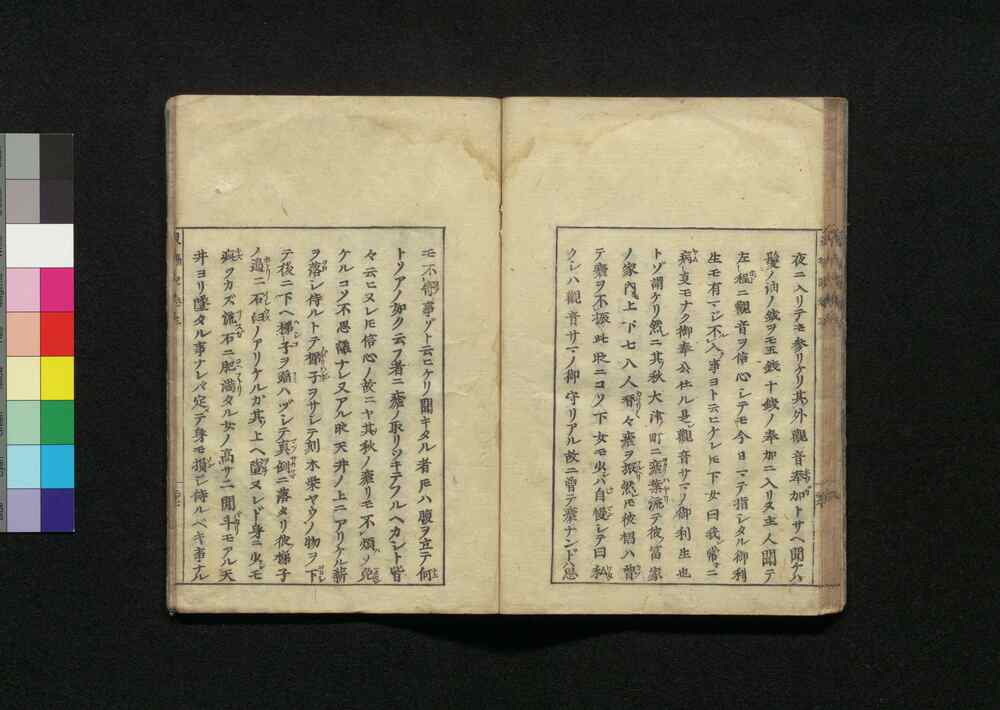 夜ニ入リテモ参リケリ其外觀音奉加トサヘ聞ケハ
髪ノ油ノ錢ヲモ五錢十錢ノ奉加ニ入リヌ主人聞テ
左程ニ觀音ヲ信心シテモ今日マテ指シタル御利
生モ有マジ不入事ヨト云ヒケレ𪜈下女曰我常ニ
病ト叓モナク御奉公仕ル是觀音サマノ御利生也
トゾ謂ケリ然ニ其秋大津町ニ瘧葉流テ彼笛家
ノ家内上下七八人替々瘧ヲ振然𪜈彼招ハ曽
テ瘧ヲ不振此時ニコソ下女モ少バ自慢シテ曰私
クレハ觀音サマノ御守リアル故ニ曽テ瘧ナンドハ思
モ不侍事ゾト云ヒケリ聞キタル者𪜈ハ腹ヲ立テ何
トソアノ如ク云フ者ニ瘧ノ取リツキテフルヘカシト皆
々云ヒヌレ𪜈信心ノ故ニヤ其秋ノ瘧リモ不煩ノ免
ケルコソ不思議ナレ又アル時天井ノ上ニアリケル薪
ヲ落シ侍ルトテ梯子ヲサシテ刻木柴ヤウノ物ヲ下
テ後ニ下ヘ梯子ヲ踏ハヅシテ真倒ニ落タリ彼梯子
ノ邊ニ石臼ノアリケルガ其上ヘ墮ヌレド身ニ少モ
疵ヲカズ流石ニ肥満タル女ノ高サニ間斗モアル天
井ヨリ墮タル事ナレバ定テ身モ損シ侍ルベキ事ナル